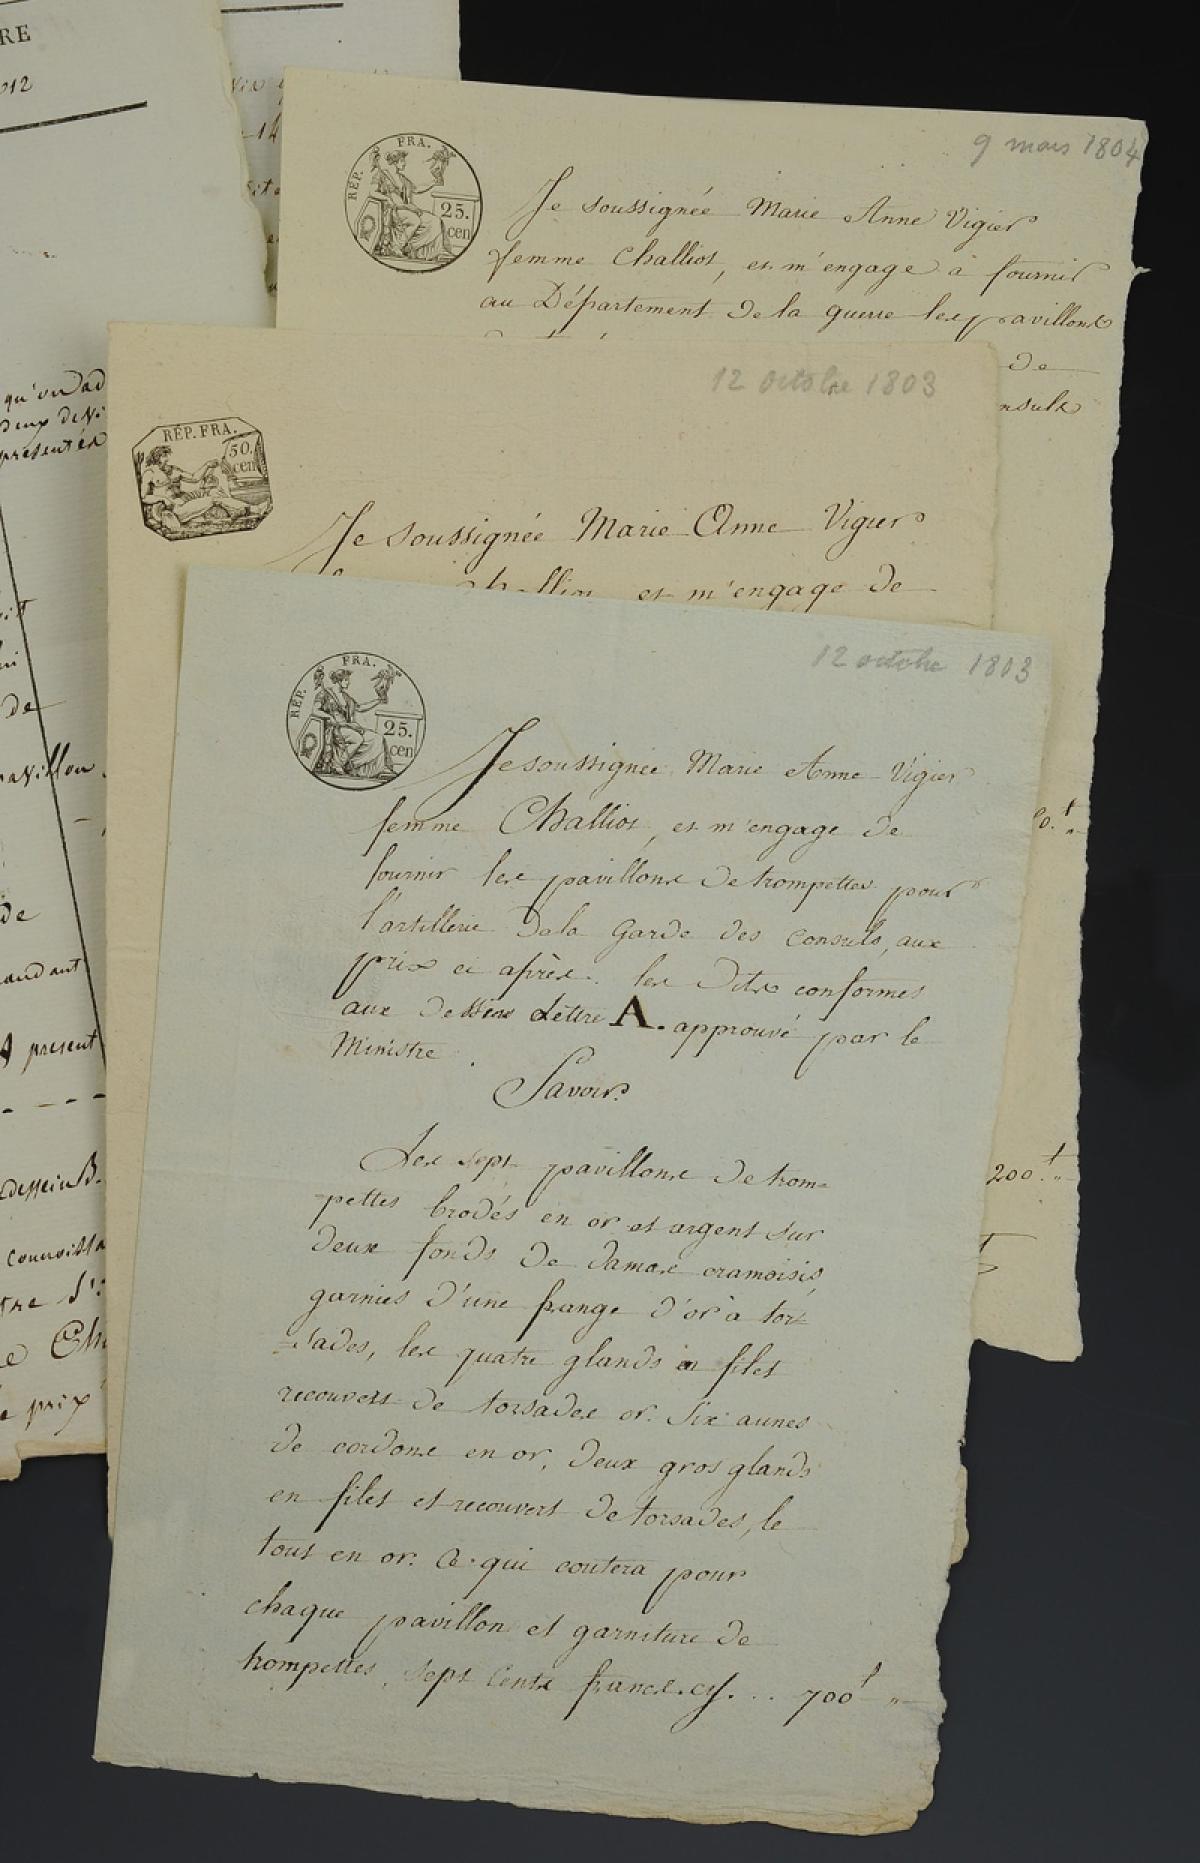 RE
012
9 mars 1804
RÉP. FRA.
25.
cen
Je soussignée Marie Anne Vigier
femme Challiot, et m'engage à fournir
au Département de la guerre les pavillons
de
nsuls
12 octobre 1803
RÉP. FRA.
50.
cen
Je soussignée Marie Anne Vigier
et m'engage de
qu'on ad
deux de
présentés
de
pavillon
de
andant
présent
dessein B.
connoissa
tre
e Ch
prix
200 f "
12 octobre 1803
RÉP. FRA.
25.
cen
Je soussignée Marie Anne Vigier
femme Challiot, et m'engage de
fournir les pavillons de trompettes pour
l'artillerie de la Garde des Consuls, aux
prix ci après. les dits conformes
aux dessins Lettre A. approuvé par le
Ministre.
Savoir.
Les sept pavillons de trom=
pettes brodés en or et argent sur
deux fonds de damas cramoisis,
garnies d'une frange d'or à tor
=sades, les quatre glands en filet
recouvert de torsades or. Six aunes
de cordons en or, deux gros glands
en filet et recouvert de torsades, le
tout en or. Ce qui coutera pour
chaque pavillon et garniture de
trompettes, sept cents francs. cy. . . 700 f "